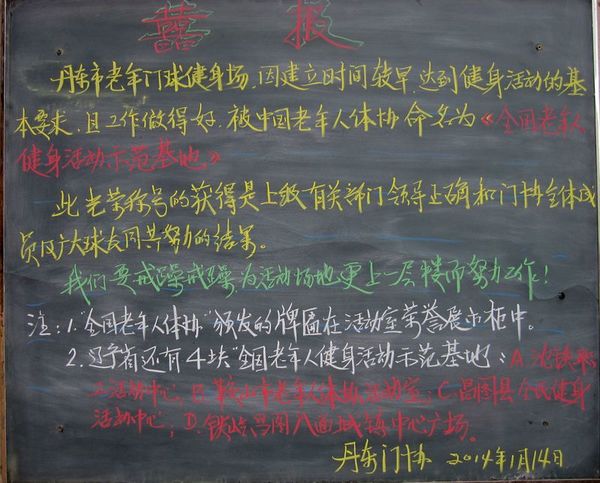 喜报
丹东市老年门球健身场,因建立时间较早,达到健身活动的基
本要求,且工作做得好,被中国老年人体协命名为《全国老年人
健身活动示范基地》
此光荣称号的获得是上级有关部门领导正确和门协全体成
员及广大球友同共努力的结果。
我们要戒躁戒躁为活动场地更上一层楼而努力工作!
注:1.“全国老年人体协”颁发的牌匾在活动室荣誉展示柜中。
2.辽宁省还有4块“全国老年人健身活动示范基地:A.沈铁
工活动中心;B.鞍山市老年人体协活动室;C.昌图县全民健身
活动中心;D.铁岭昌图八面城镇中心广场。
丹东门协 2014年1月14日